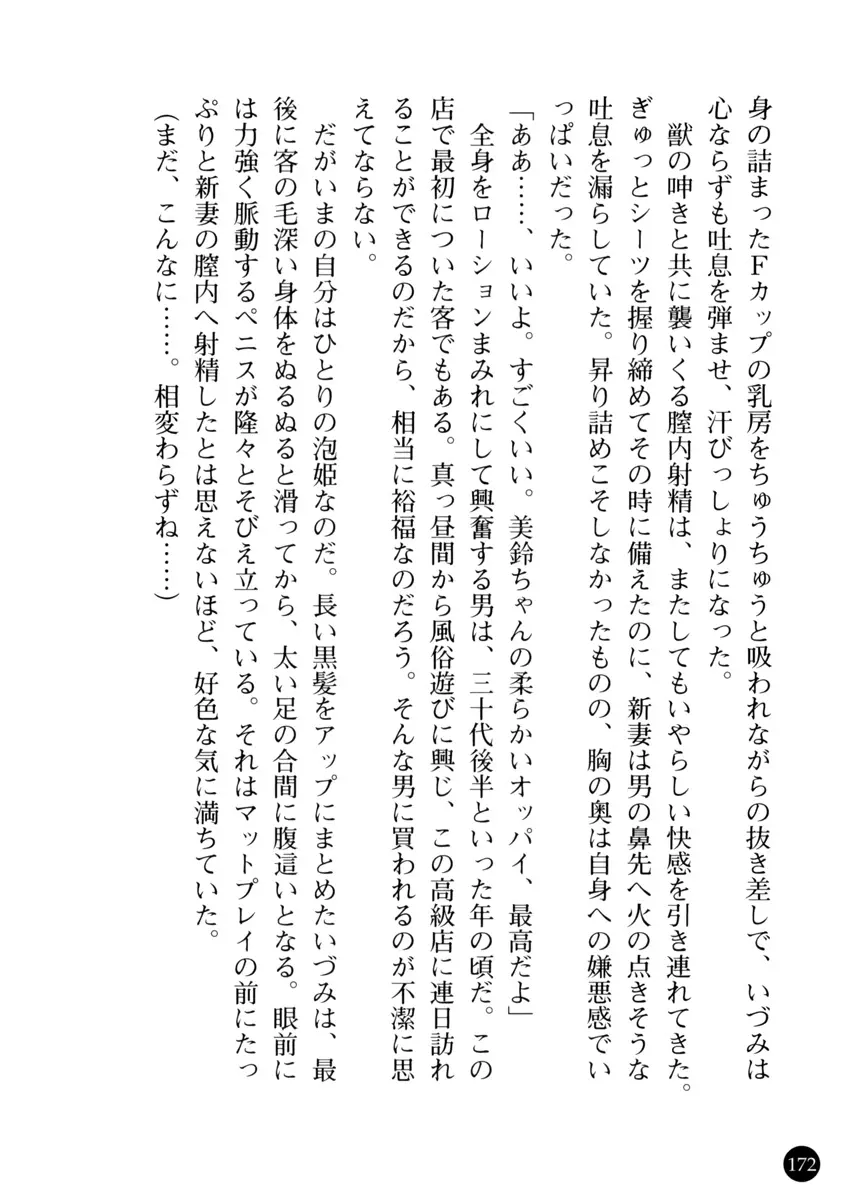 身の詰まったFカップの乳房をちゅうちゅうと吸われながらの抜き差しで、いづみは
心ならずも吐息を弾ませ、汗びっしょりになった。
獣の呻きと共に襲いくる膣内射精は、またしてもいやらしい快感を引き連れてきた。
ぎゅっとシーツを握り締めてその時に備えたのに、新妻は男の鼻先へ火の点きそうな
吐息を漏らしていた。昇り詰めこそしなかったものの、胸の奥は自身への嫌悪感でい
っぱいだった。
「ああ……、いいよ。すごくいい。美鈴ちゃんの柔らかいオッパイ、最高だよ」
全身をローションまみれにして興奮する男は、三十代後半といった年の頃だ。この
店で最初についた客でもある。真っ昼間から風俗遊びに興じ、この高級店に連日訪れ
ることができるのだから、相当に裕福なのだろう。そんな男に買われるのが不潔に思
えてならない。
だがいまの自分はひとりの泡姫なのだ。長い黒髪をアップにまとめたいづみは、最
後に客の毛深い身体をぬるぬると滑ってから、太い足の合間に腹這いとなる。眼前に
は力強く脈動するペニスが隆々とそびえ立っている。それはマットプレイの前にたっ
ぷりと新妻の膣内へ射精したとは思えないほど、好色な気に満ちていた。
（まだ、こんなに……。相変わらずね……）
172